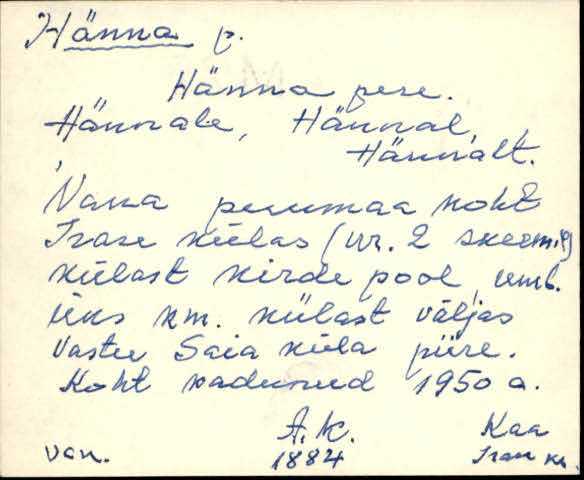 Hänna p.
Hänna pere.
Hännale, Hännal,
Hännalt.
Vana perumaa koht
Irase külas (nr. 2 skeemil)
külast kirde pool, umb.
üks km. külast väljas
vastu Saia küla piire.
Koht kadunud 1950 a.
A.K. Kaa
van. 1884 Irase k.